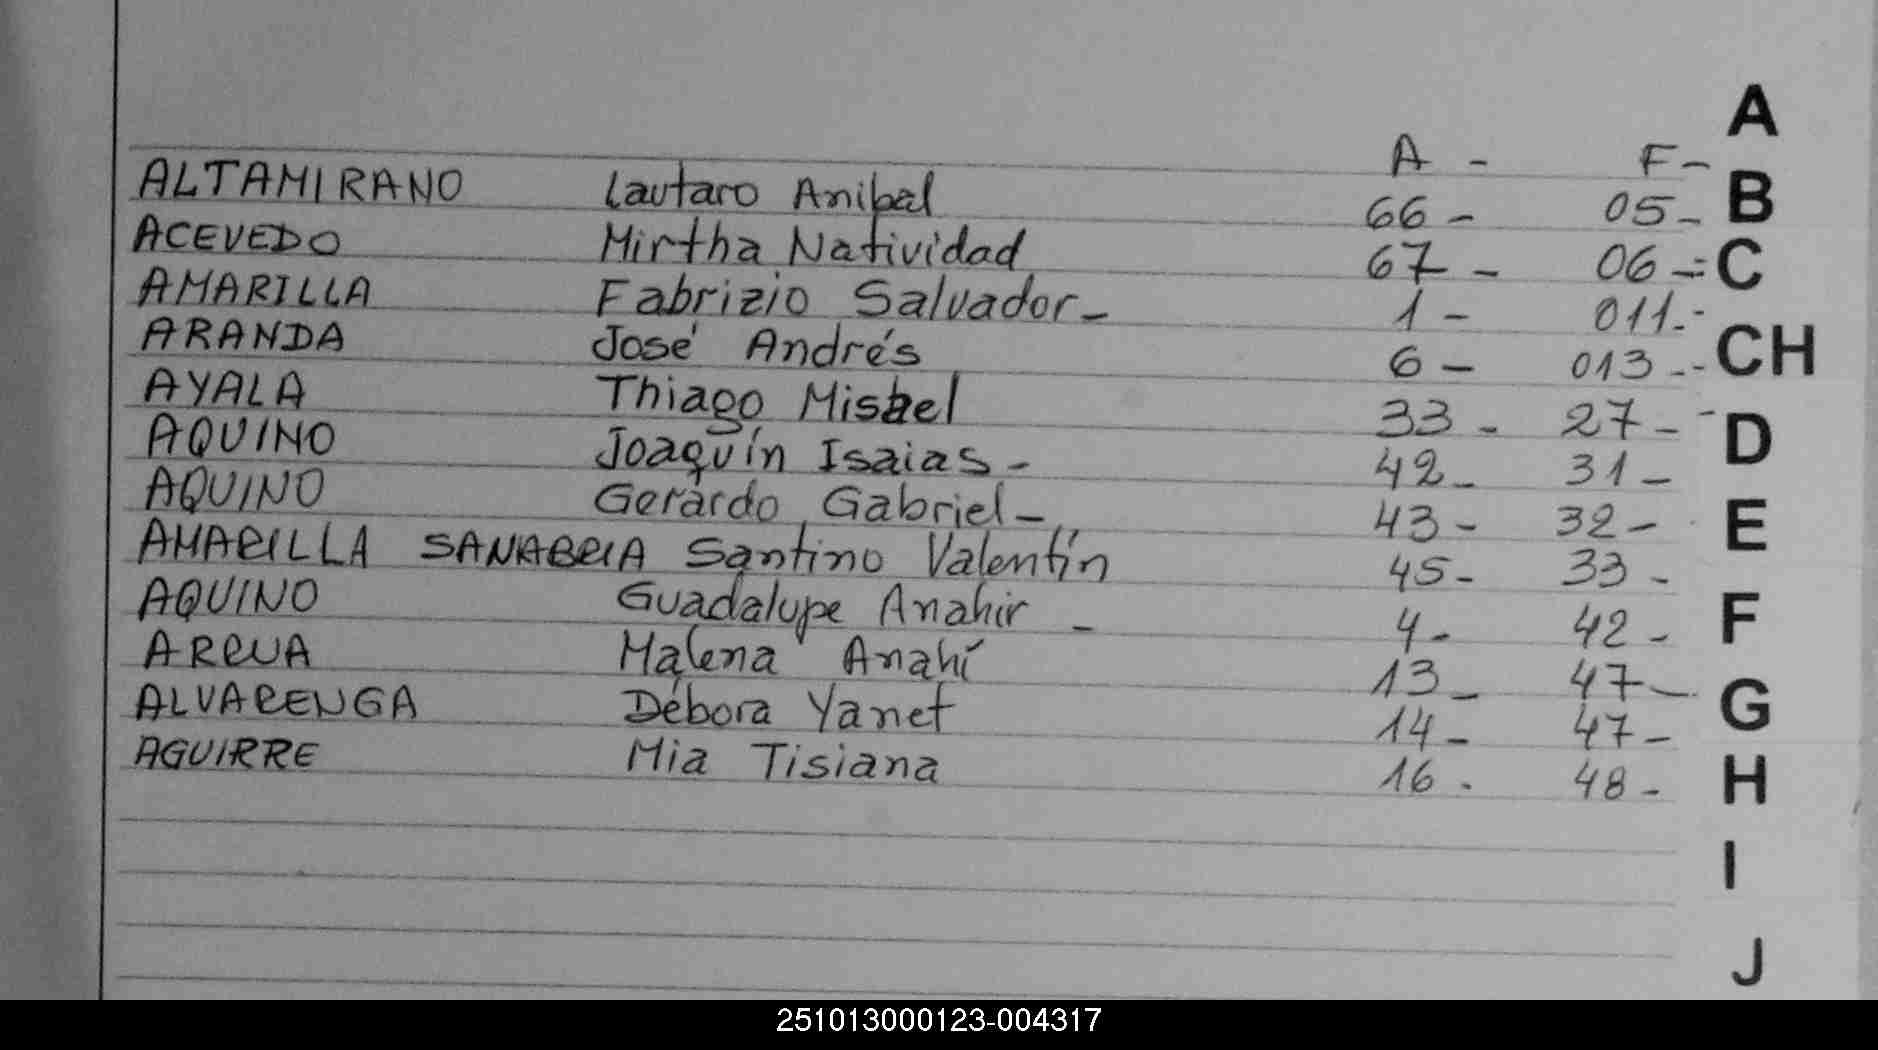 A - F-
ALTAMIRANO Lautaro Anibal 66 - 05 -
ACEVEDO Mirtha Natividad 67 - 06 -
AMARILLA Fabrizio Salvador - 1 - 011 -
ARANDA José Andrés 6 - 013 -
AYALA Thiago Misael 33 - 27 -
AQUINO Joaquín Isaias - 42 - 31 -
AQUINO Gerardo Gabriel - 43 - 32 -
AMARILLA SANABRIA Santino Valentín 45 - 33 -
AQUINO Guadalupe Anahir - 4 - 42 -
ARRUA Malena Anahí 13 - 47 -
ALVARENGA Débora Yanet 14 - 47 -
AGUIRRE Mia Tisiana 16 - 48 -
A
B
C
CH
D
E
F
G
H
I
J
251013000123-004317